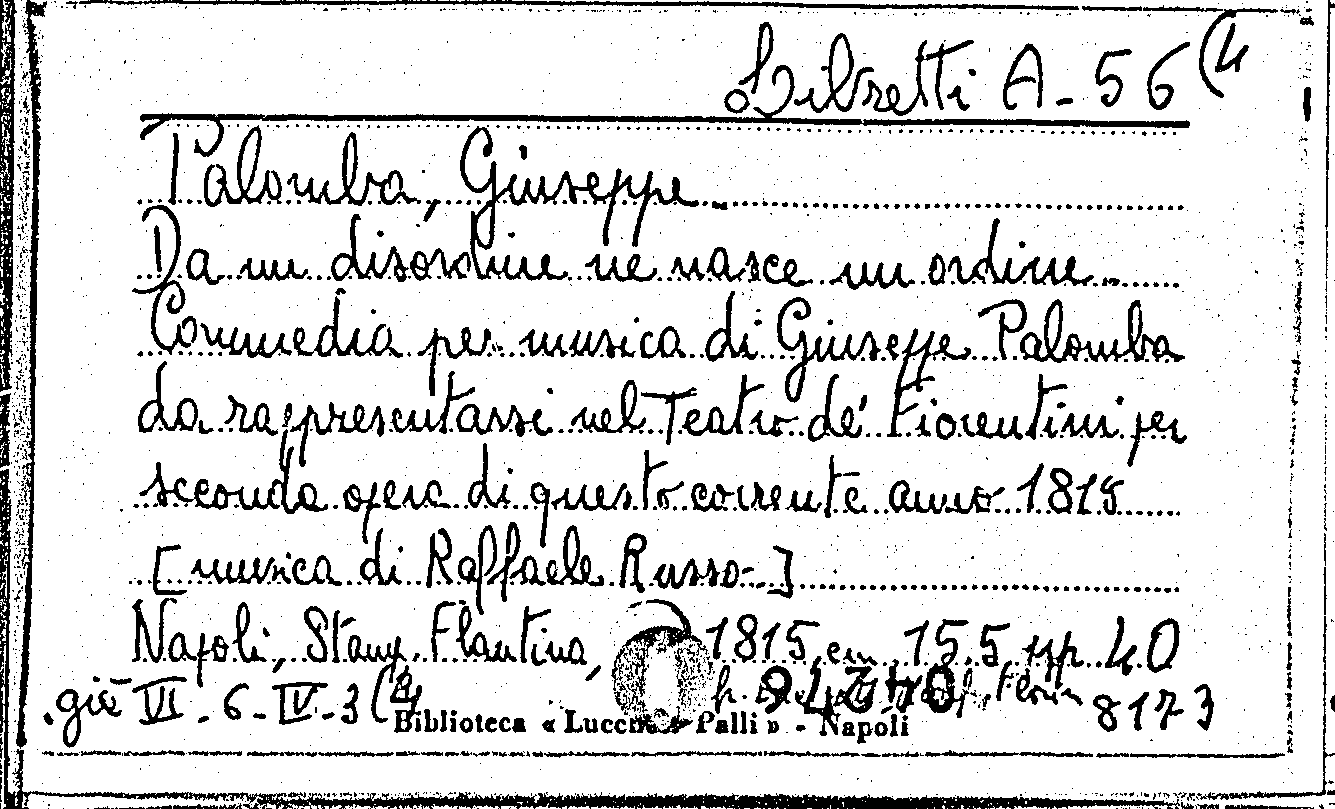 Libretti A - 56 (4
Palomba, Giuseppe
Da un disordine ne nasce un ordine
Commedia per musica di Giuseppe Palomba
da rappresentarsi nel Teatro de' Fiorentini per
seconda opera di questo corrente anno 1815
[musica di Raffaele Russo]
Napoli, Stamp. Flautina, 1815, cm. 15.5 pp. 40
già VI - 6 - IV - 3 (4 8173
Biblioteca « Lucchesi Palli » - Napoli